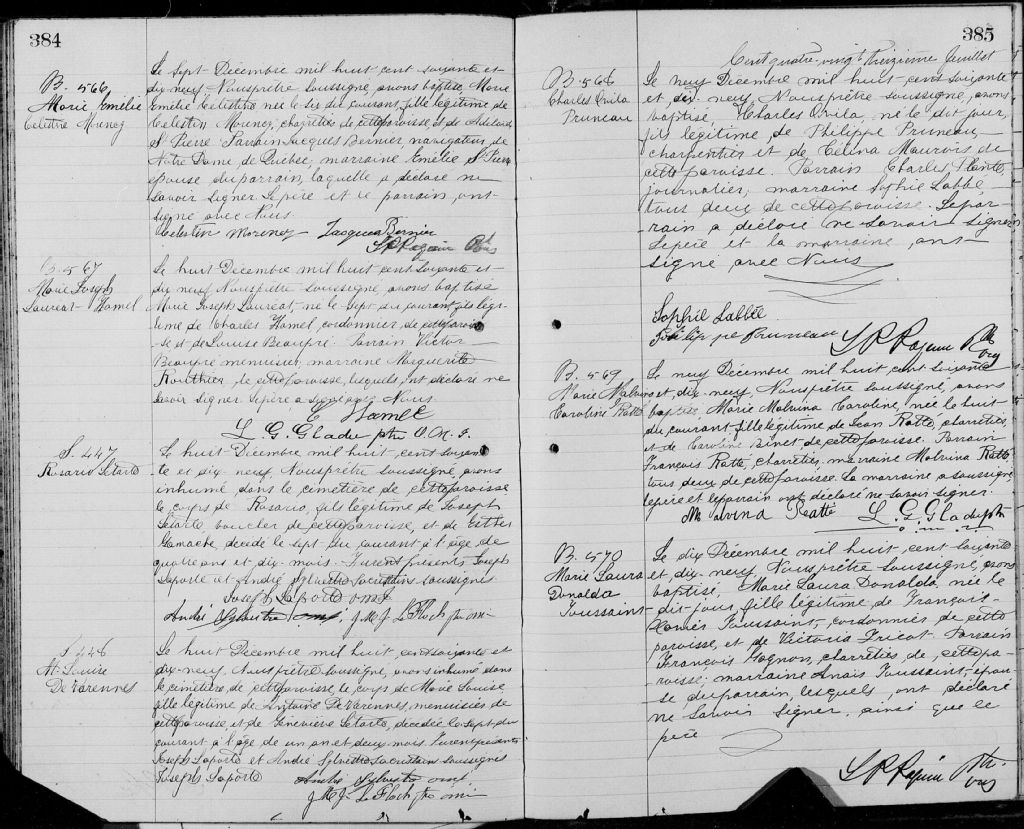 384
B. 566
Marie Emélie
Celestine Morency
Le Sept Décembre mil huit cent soixante et
dix neuf Nous prêtre soussigné, avons baptisé, Marie
Emélie Celestine née le six du courant, fille légitime de
Celestin Morency, charretier de cette paroisse et de Adelaide
St Pierre Parrain Jacques Bernier, navigateur de
Notre Dame de Québec, marraine Emélie St Pierre
épouse du parrain, laquelle a déclaré ne
savoir signer. Le père et le parrain, ont
signé avec Nous.
Celestin Morency Jacques Bernier
B. 567
Marie Joseph
Lauréat Hamel
Le huit Décembre mil huit cent soixante et
dix neuf Nous prêtre soussigné avons baptisé
Marie Joseph Lauréat, né le Sept du courant, fils légi-
time de Charles Hamel, cordonnier, de cette parois-
se et de Louise Beaupré. Parrain Victor
Beaupré menuisier, marraine Marguerite
Routhier, de cette paroisse, lesquels ont déclaré ne
savoir signer. Le père a signé avec Nous.
C Hamel
L. G. Gladu ptre O. M. I.
S. 447
Rosario Letarte
Le huit Décembre mil huit, cent soixan-
te et dix neuf, Nous prêtre soussigné, avons
inhumé dans le cimetière de cette paroisse
le corps de Rosario, fils légitime de Joseph
Letarte boucher de cette paroisse, et de Esther
Gamache, décédé le sept du courant à l'âge de
quatre ans et dix mois. Furent présents, Joseph
Laporte et André Sylvestre Sacristains soussignés
Joseph Laporte omi
André Sylvestre omi, J. M. J. Le Floch ptre omi
S 448
M. Louise
De Varennes
Le huit Décembre mil huit, cent soixante et
dix-neuf, Nous prêtre soussigné, avons inhumé dans
le cimetière, de cette paroisse, le corps de Marie Louise
fille légitime de Antoine De Varennes, menuisier de
cette paroisse, et de Geneviève Letarte, décédée le sept du
courant à l'âge de un an et deux mois. Furent présents
Joseph Laporte et André Sylvestre Sacristains soussignés
Joseph Laporte André Sylvestre omi
J. M. J. Le Floch ptre omi
385
Cent quatre vingt treizième feuillet
B. 568
Charles Ovila
Pruneau
Le neuf Décembre mil huit cent soixante
et dix neuf, Nous prêtre soussigné, avons
baptisé, Charles Ovila, né le dit jour,
fils légitime de Philippe Pruneau,
charpentier et de Célina Mauvois de
cette paroisse. Parrain Charles Plante,
journalier, marraine Sophie Labbé,
tous deux de cette paroisse. Le par-
rain a déclaré ne savoir signer
Le père et la marraine, ont
signé avec Nous
Sophie Labbée
Philippe Pruneau
B. 569
Marie Malvina
Caroline Ratté
Le neuf Décembre mil huit cent soixante
et dix, neuf, Nous prêtre soussigné, avons
baptisé, Marie Malvina Caroline, née le huit
du courant fille légitime de Jean Ratté, charretier,
et de Caroline Binet de cette paroisse. Parrain
François Ratté, charretier, marraine Malvina Ratté
tous deux de cette paroisse. La marraine a soussigné
le père et le parrain ont déclaré ne savoir signer.
Malvina Ratté L. G. Gladu ptre
o. m. i.
B. 570
Marie Laura
Donalda
Toussaint
Le dix Décembre mil huit, cent soixante
et dix neuf, Nous prêtre soussigné, avons
baptisé, Marie Laura Donalda née le
dit jour, fille légitime de François
Xavier Toussaint, cordonnier de cette
paroisse, et de Victoria Fricot. Parrain
François Gagnon, charretier de, cette pa-
roisse, marraine Anaïs Toussaint, épou-
se du parrain, lesquels, ont déclaré
ne savoir signer, ainsi que le
père